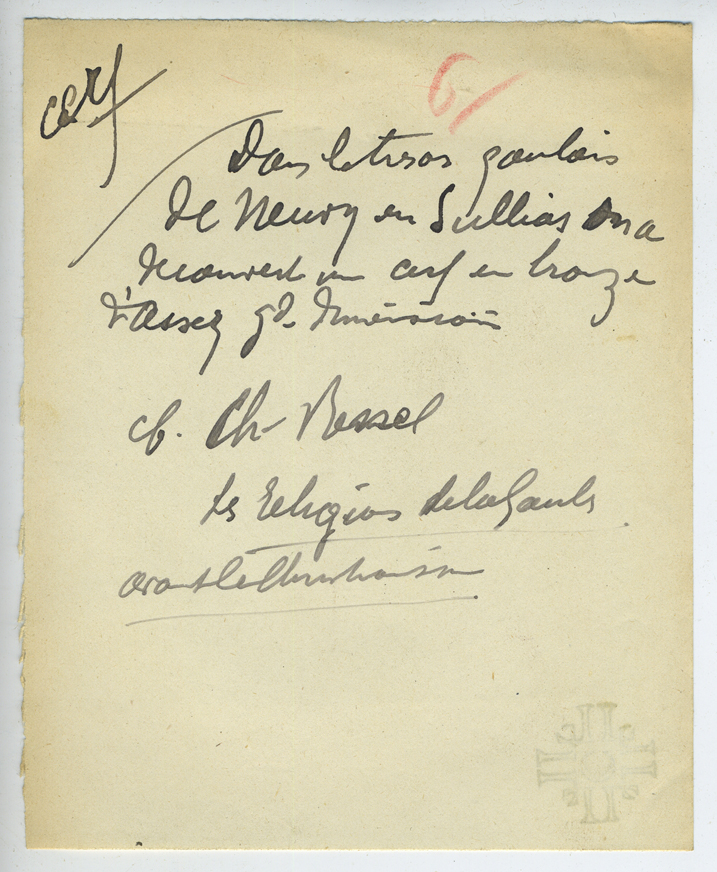 cerf
6/
Dans le tresor gaulois
de Neuvy en Sullias on a
decouvert un cerf en bronze
d'assez gde dimension
cf. Ch Ressel
Les Religions de la Gaule
avant le Christianisme